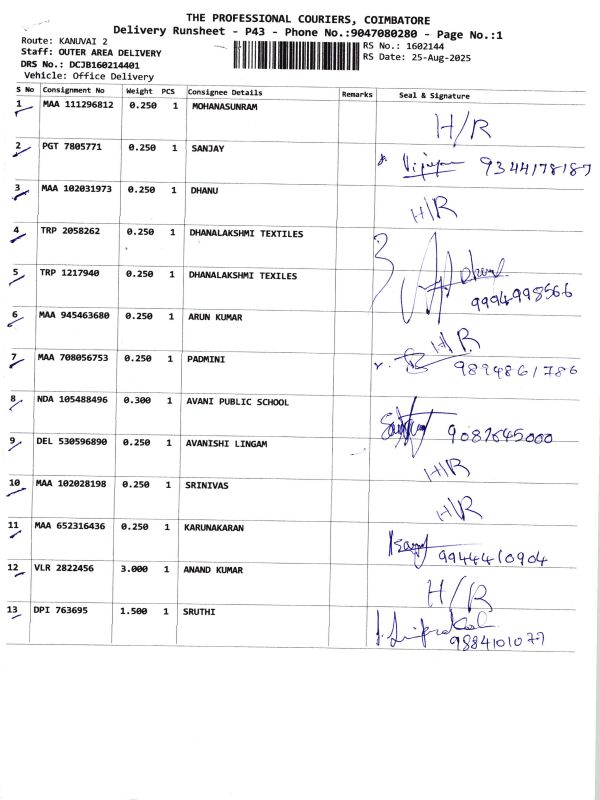 THE PROFESSIONAL COURIERS, COIMBATORE
Delivery Runsheet - P43 - Phone No.:9047080280 - Page No.:1
Route: KANUVAI 2
Staff: OUTER AREA DELIVERY
DRS No.: DCJB160214401
Vehicle: Office Delivery
RS No.: 1602144
RS Date: 25-Aug-2025
S No Consignment No Weight PCS Consignee Details Remarks Seal & Signature
1 MAA 111296812 0.250 1 MOHANASUNRAM H/R
2 PGT 7805771 0.250 1 SANJAY 9344178187
3 MAA 102031973 0.250 1 DHANU H/R
4 TRP 2058262 0.250 1 DHANALAKSHMI TEXTILES
5 TRP 1217940 0.250 1 DHANALAKSHMI TEXILES 9994998566
6 MAA 945463680 0.250 1 ARUN KUMAR H/R
7 MAA 708056753 0.250 1 PADMINI 9894861786
8 NDA 105488496 0.300 1 AVANI PUBLIC SCHOOL 9087645000
9 DEL 530596890 0.250 1 AVANISHI LINGAM H/R
10 MAA 102028198 0.250 1 SRINIVAS H/R
11 MAA 652316436 0.250 1 KARUNAKARAN 9944410904
12 VLR 2822456 3.000 1 ANAND KUMAR H/R
13 DPI 763695 1.500 1 SRUTHI 9884101077